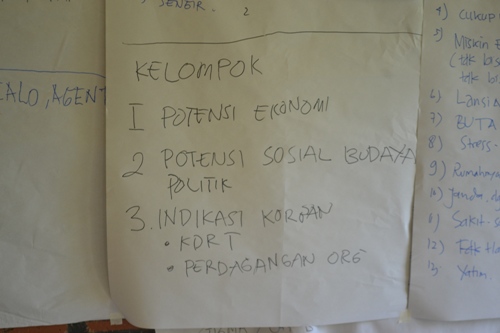 SENEIR. 2
CALO, AGENT
KELOMPOK
I POTENSI EKONOMI
2 POTENSI SOSIAL BUDAYA
POLITIK
3. INDIKASI KORBAN
• KDRT
• PERDAGANGAN ORG
4) cukup
5) Miskin
6) Lansia
7) BUTA
8) Stress
9)
10) Janda,
11) Sakit-
12)
13. Yatim